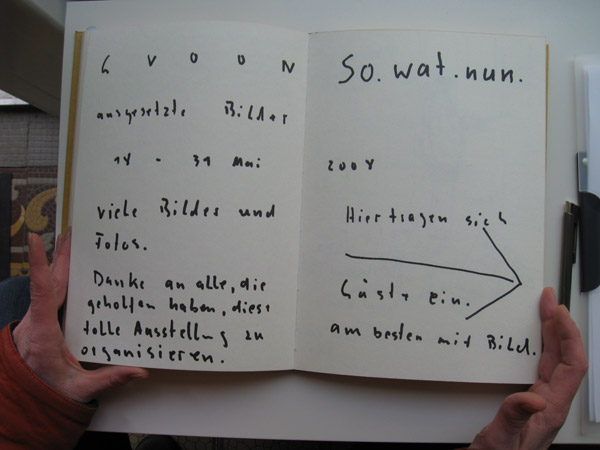 G V O O N
ausgesetzte Bilder
18 - 31 Mai
viele Bilder und
Fotos.
Danke an alle, die
geholfen haben, diese
tolle Ausstellung zu
organisieren.
So. wat. nun.
2008
Hier tragen sich
Gäste ein.
am besten mit Bild.